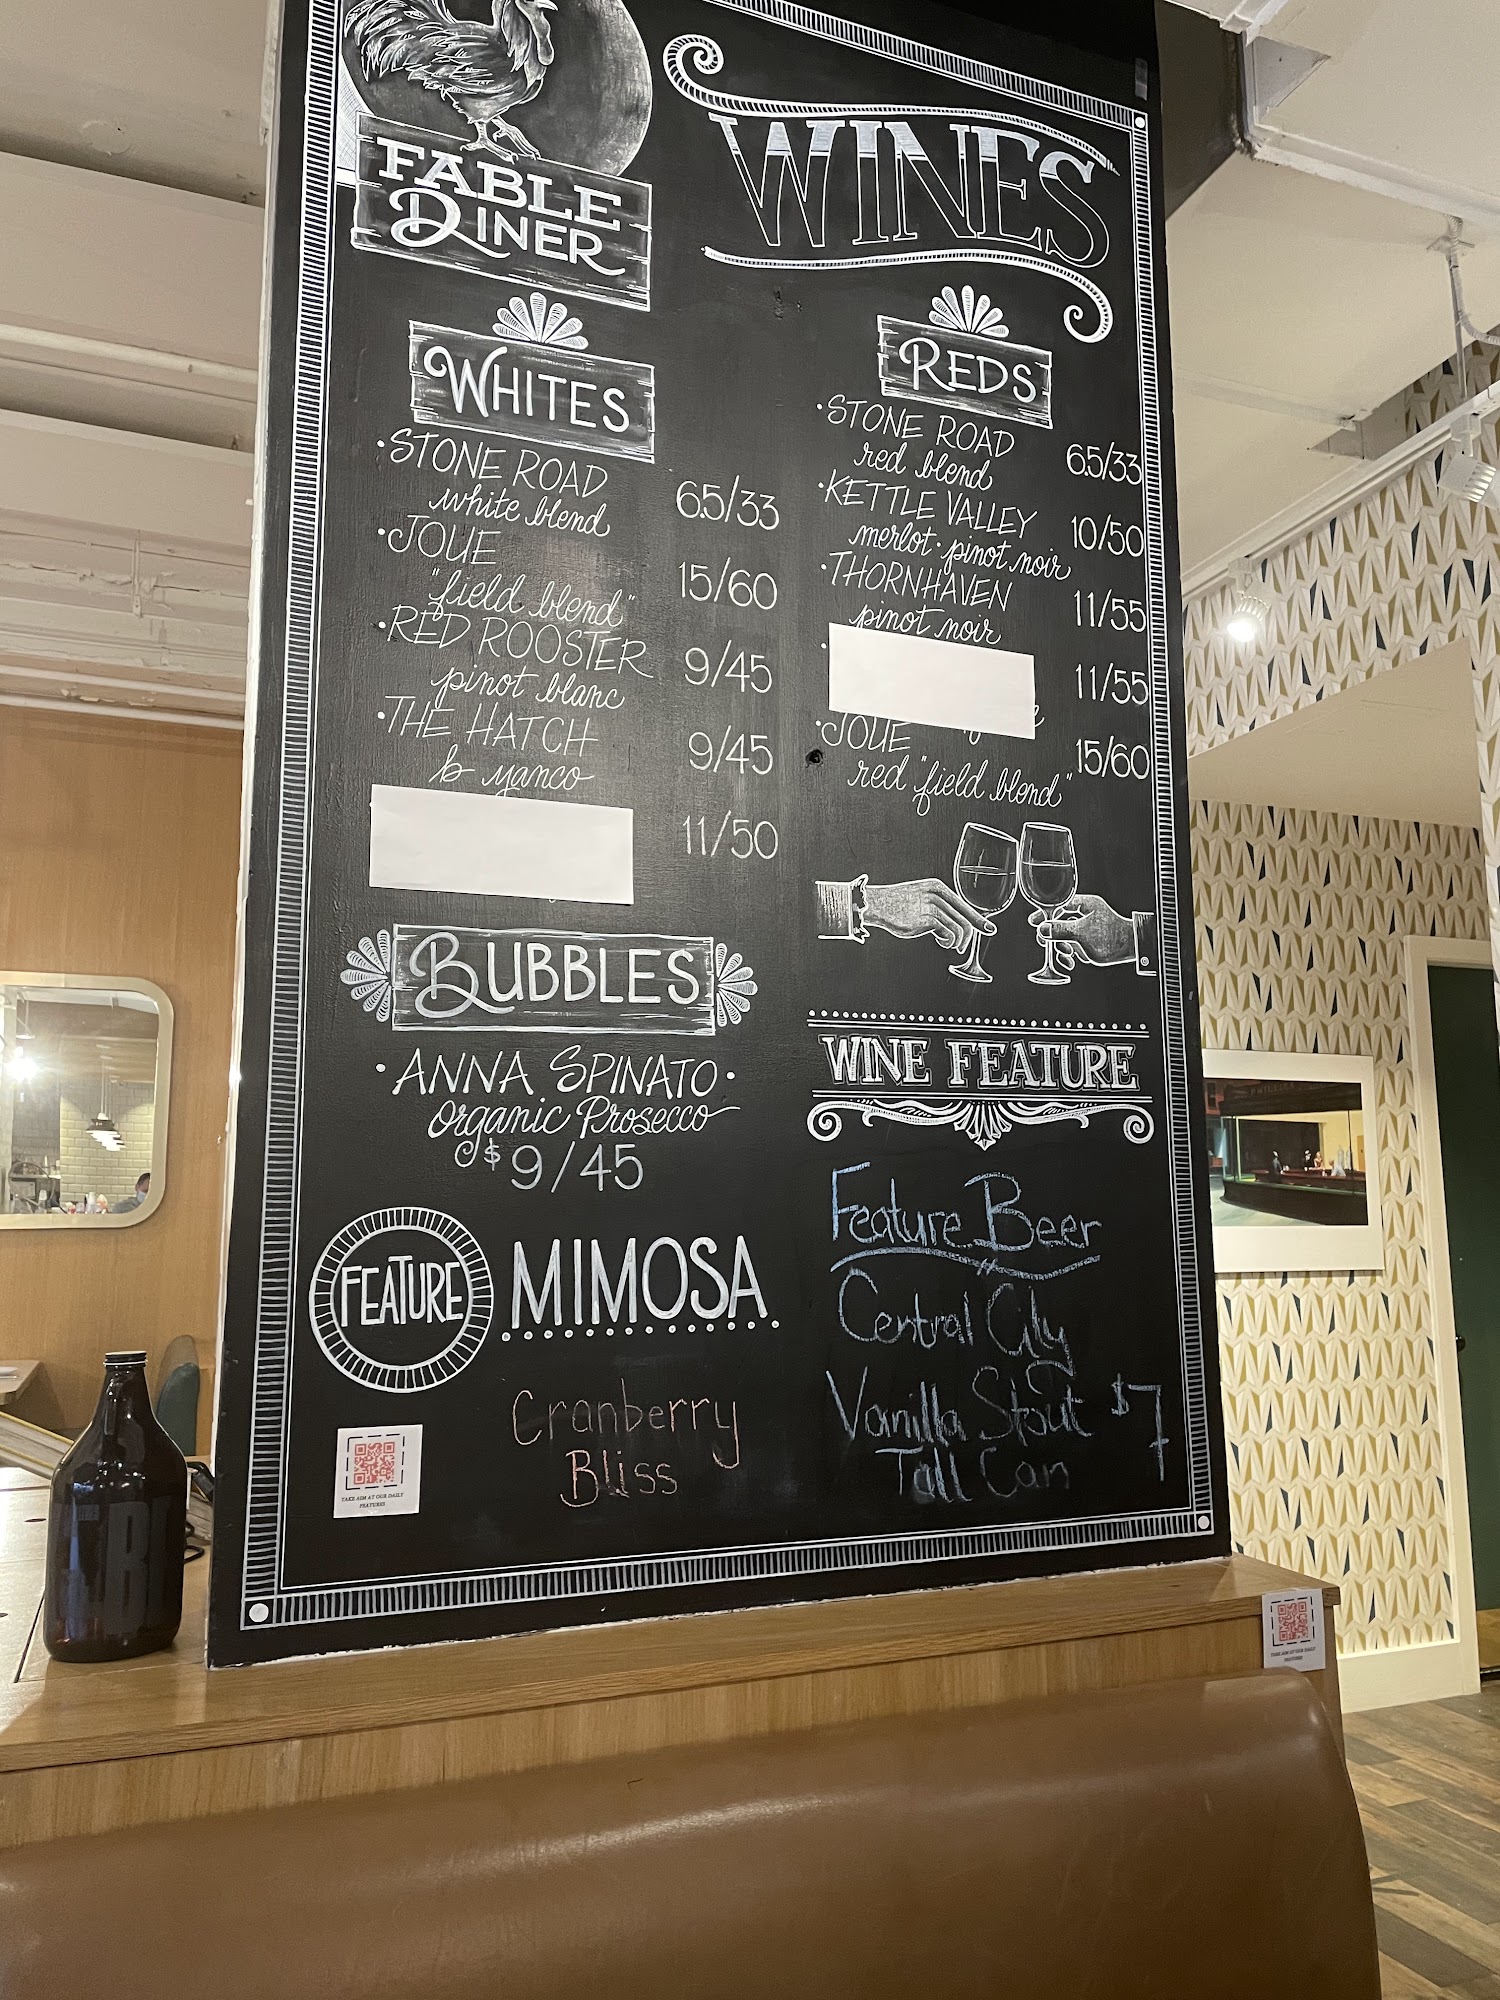 FABLE
DINER
WINES
WHITES
·STONE ROAD
white blend
6.5/33
·JOIE
"field blend"
15/60
·RED ROOSTER
pinot blanc
9/45
·THE HATCH
b yanco
9/45
11/50
REDS
·STONE ROAD
red blend
6.5/33
·KETTLE VALLEY
merlot·pinot noir
10/50
·THORNHAVEN
pinot noir
11/55
11/55
·JOIE
red "field blend"
15/60
BUBBLES
·ANNA SPINATO·
organic Prosecco
$9/45
FEATURE
MIMOSA
Cranberry
Bliss
TAKE AIM AT OUR DAILY
FEATURES
WINE FEATURE
Feature Beer
Central City
Vanilla Stout $7
Tall Can
TAKE AIM AT OUR DAILY
FEATURES